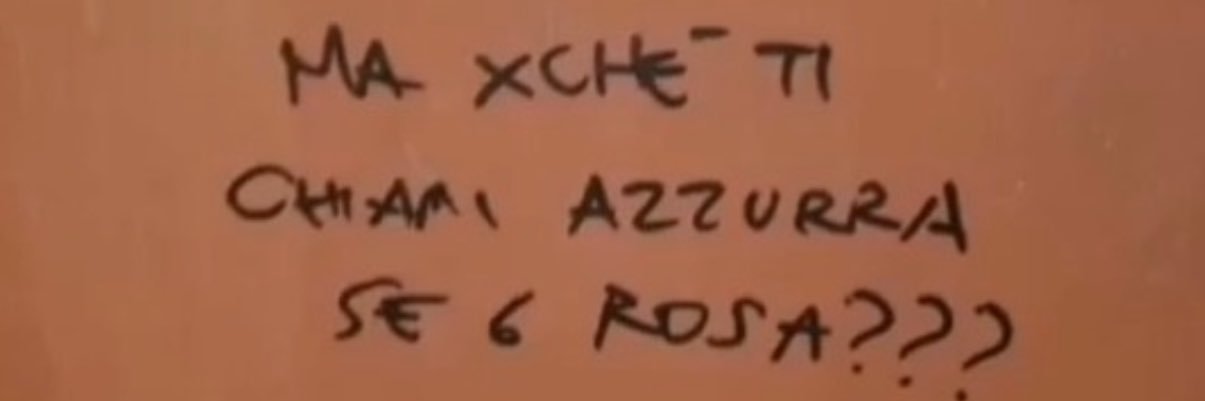 MA XCHE' TI
CHIAMI AZZURRA
SE 6 ROSA???